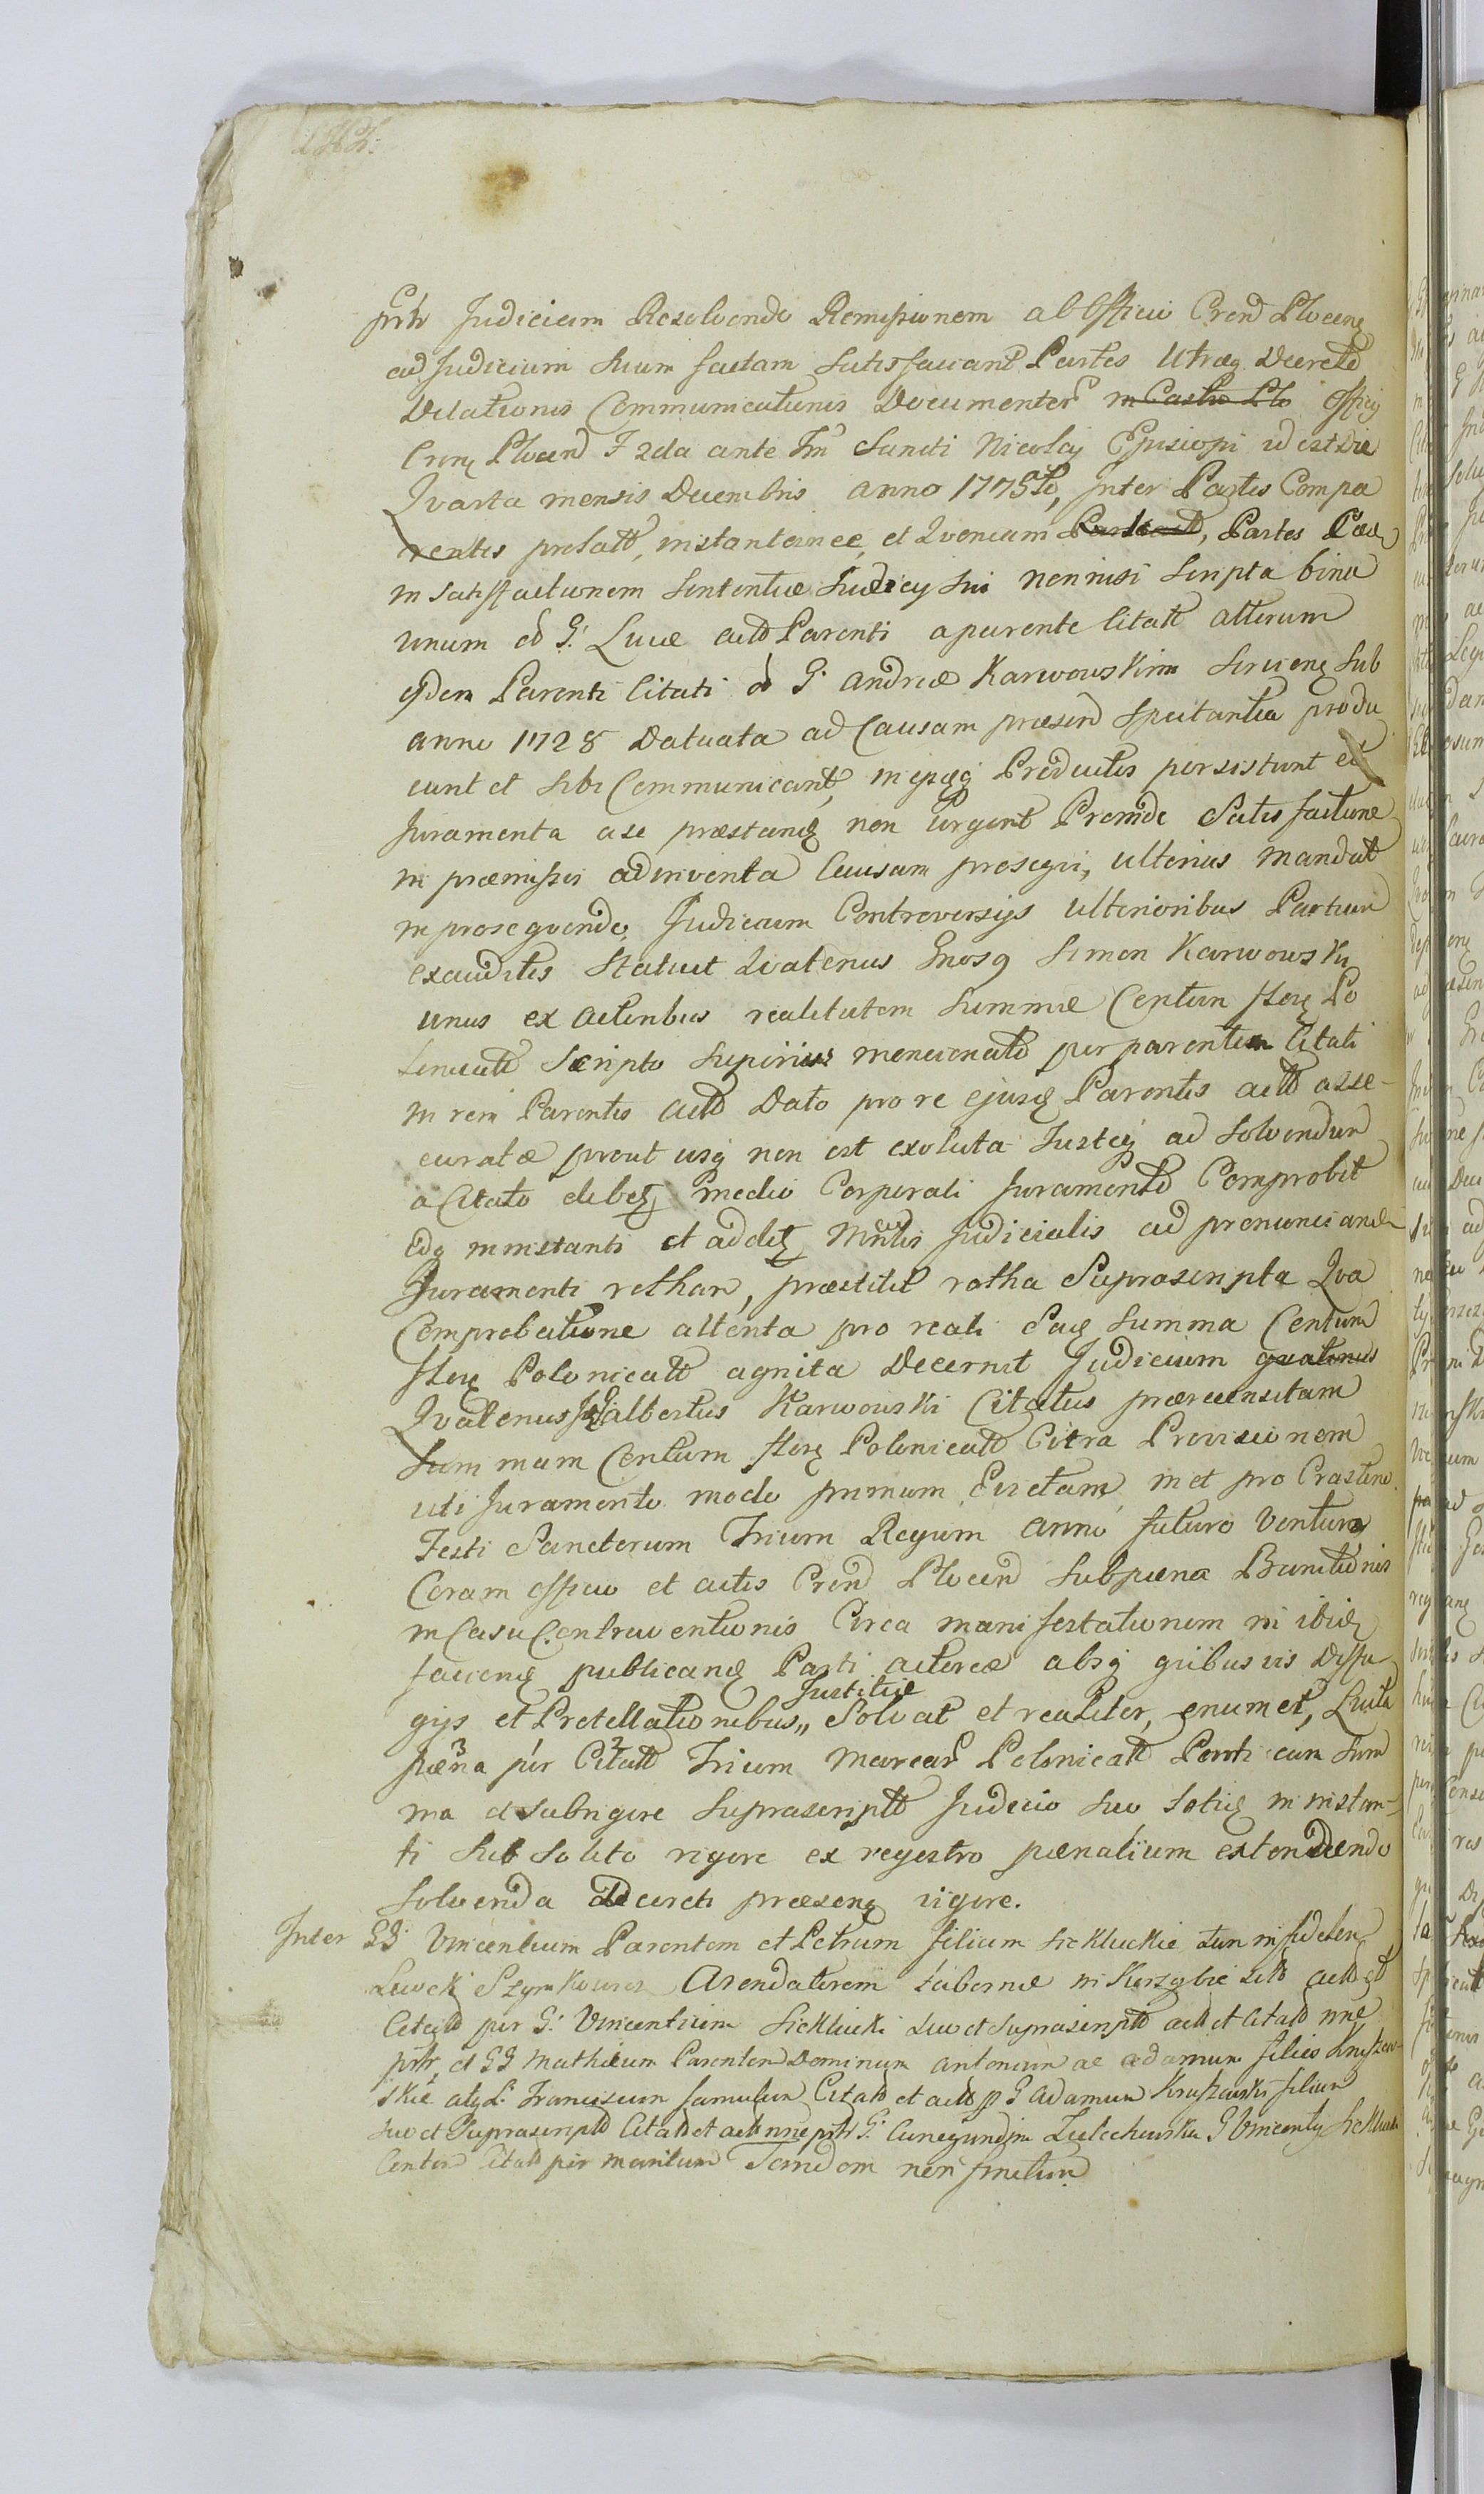 Judicium Resolvendo Remissionem ab Officio Crend Plocens
ad Judicium suum factam satisfaciant Partes Utraeq Decreto
Dilationis Communicationis Documentor in Castro Plo Officij
Plocen F 2da ante Fm Sancti Nicolaj Episcopi id est die
Qvarta mensis Decembris anno 1775to, Inter Partes Compa
rentes prolatt, instantemee, et Qvoniam, Partes
in Satisfactionem Sententiae Judicy sui non nisi Scripta bina
unum ad G. Lucae actt Parenti a parente Citatt alterum
ejdem Parenti Citati ad G. Andreae Karwowskim Serviens sub
anno 1728 Datuata ad Causam praesend Spectantia produ
cunt et sibi Communicant, in ipsisq Productis persistunt et
Juramenta a se praestand non Urgent Proinde Satisfactione
in praemissis adinventa Causam prosegvi, ulterius mandat
in prosegvendo Judicium Controversijs Ulterioribus Partium
exauditis Statuit Qvatenus Gnosq Simon Karwowski
unus ex Actoribus realitatem Summae Centum flors Po
lonicatt Scripto superius mencionato per parentem Citati
in rem Parentis actt Dato pro re ejusd Parentis actt asse-
curatae prout usq non est exoluta Justeq ad Solvendum
a Citato debet medio Corporali Juramento Comprobet
idq in instanti et addit Mnlis Judicialis ad pronunciand
Juramenti rotham, praestitit rotha Suprascripta Qva
Comprobatione attenta pro reali Summa Centum
flors Polonicatt agnita Decernit Judicium quatenus
Qvatenus Albertus Karwowski Citatus praerecensitam
Summam Centum flors Polonicatt Citra Provisionem
uti Juramento modo primum Evictam in et pro Crastino
Festi Sanctorum Trium Regum anno futuro Venturo
Coram officio et actis Crend Plocend Sub poena Banitionis
in Casu Contraventionis Circa manifestationem in ibid
faciend publicand Parti actoreae absq qvibusvis Diffu
gijs et Pretellationibus,, Justitiae Solvat et realiter, enumet, Luita
3 poena per 2 Citatt Trium Marcar Polonicatt Parti cum Sum
ma et subrigore Suprascriptt Judicio suo totid in instan-
ti Sub Solito rigore ex regestro poenalium extendendo
Solvenda Decreti praesens vigore.
Inter GG Vincentium Parentem et Petrum filium Sickluckie
Szymkowicz Arendatorem tabernae in
Citatt per G. Vincentium Sicklucki suo et suprascriptt actt et Citatt nne
prtr, et GG Mathaeum Parentem Dominum Antonium ac Adamum filios
skie atq L. Franciscum famulum Citatt et actt p G Adamum Kruszewski filium
suo et Suprascriptt Citatt et actt nne prtr G. Cunegundim G Vincenty
Citatt per maritum Tandem non finitum